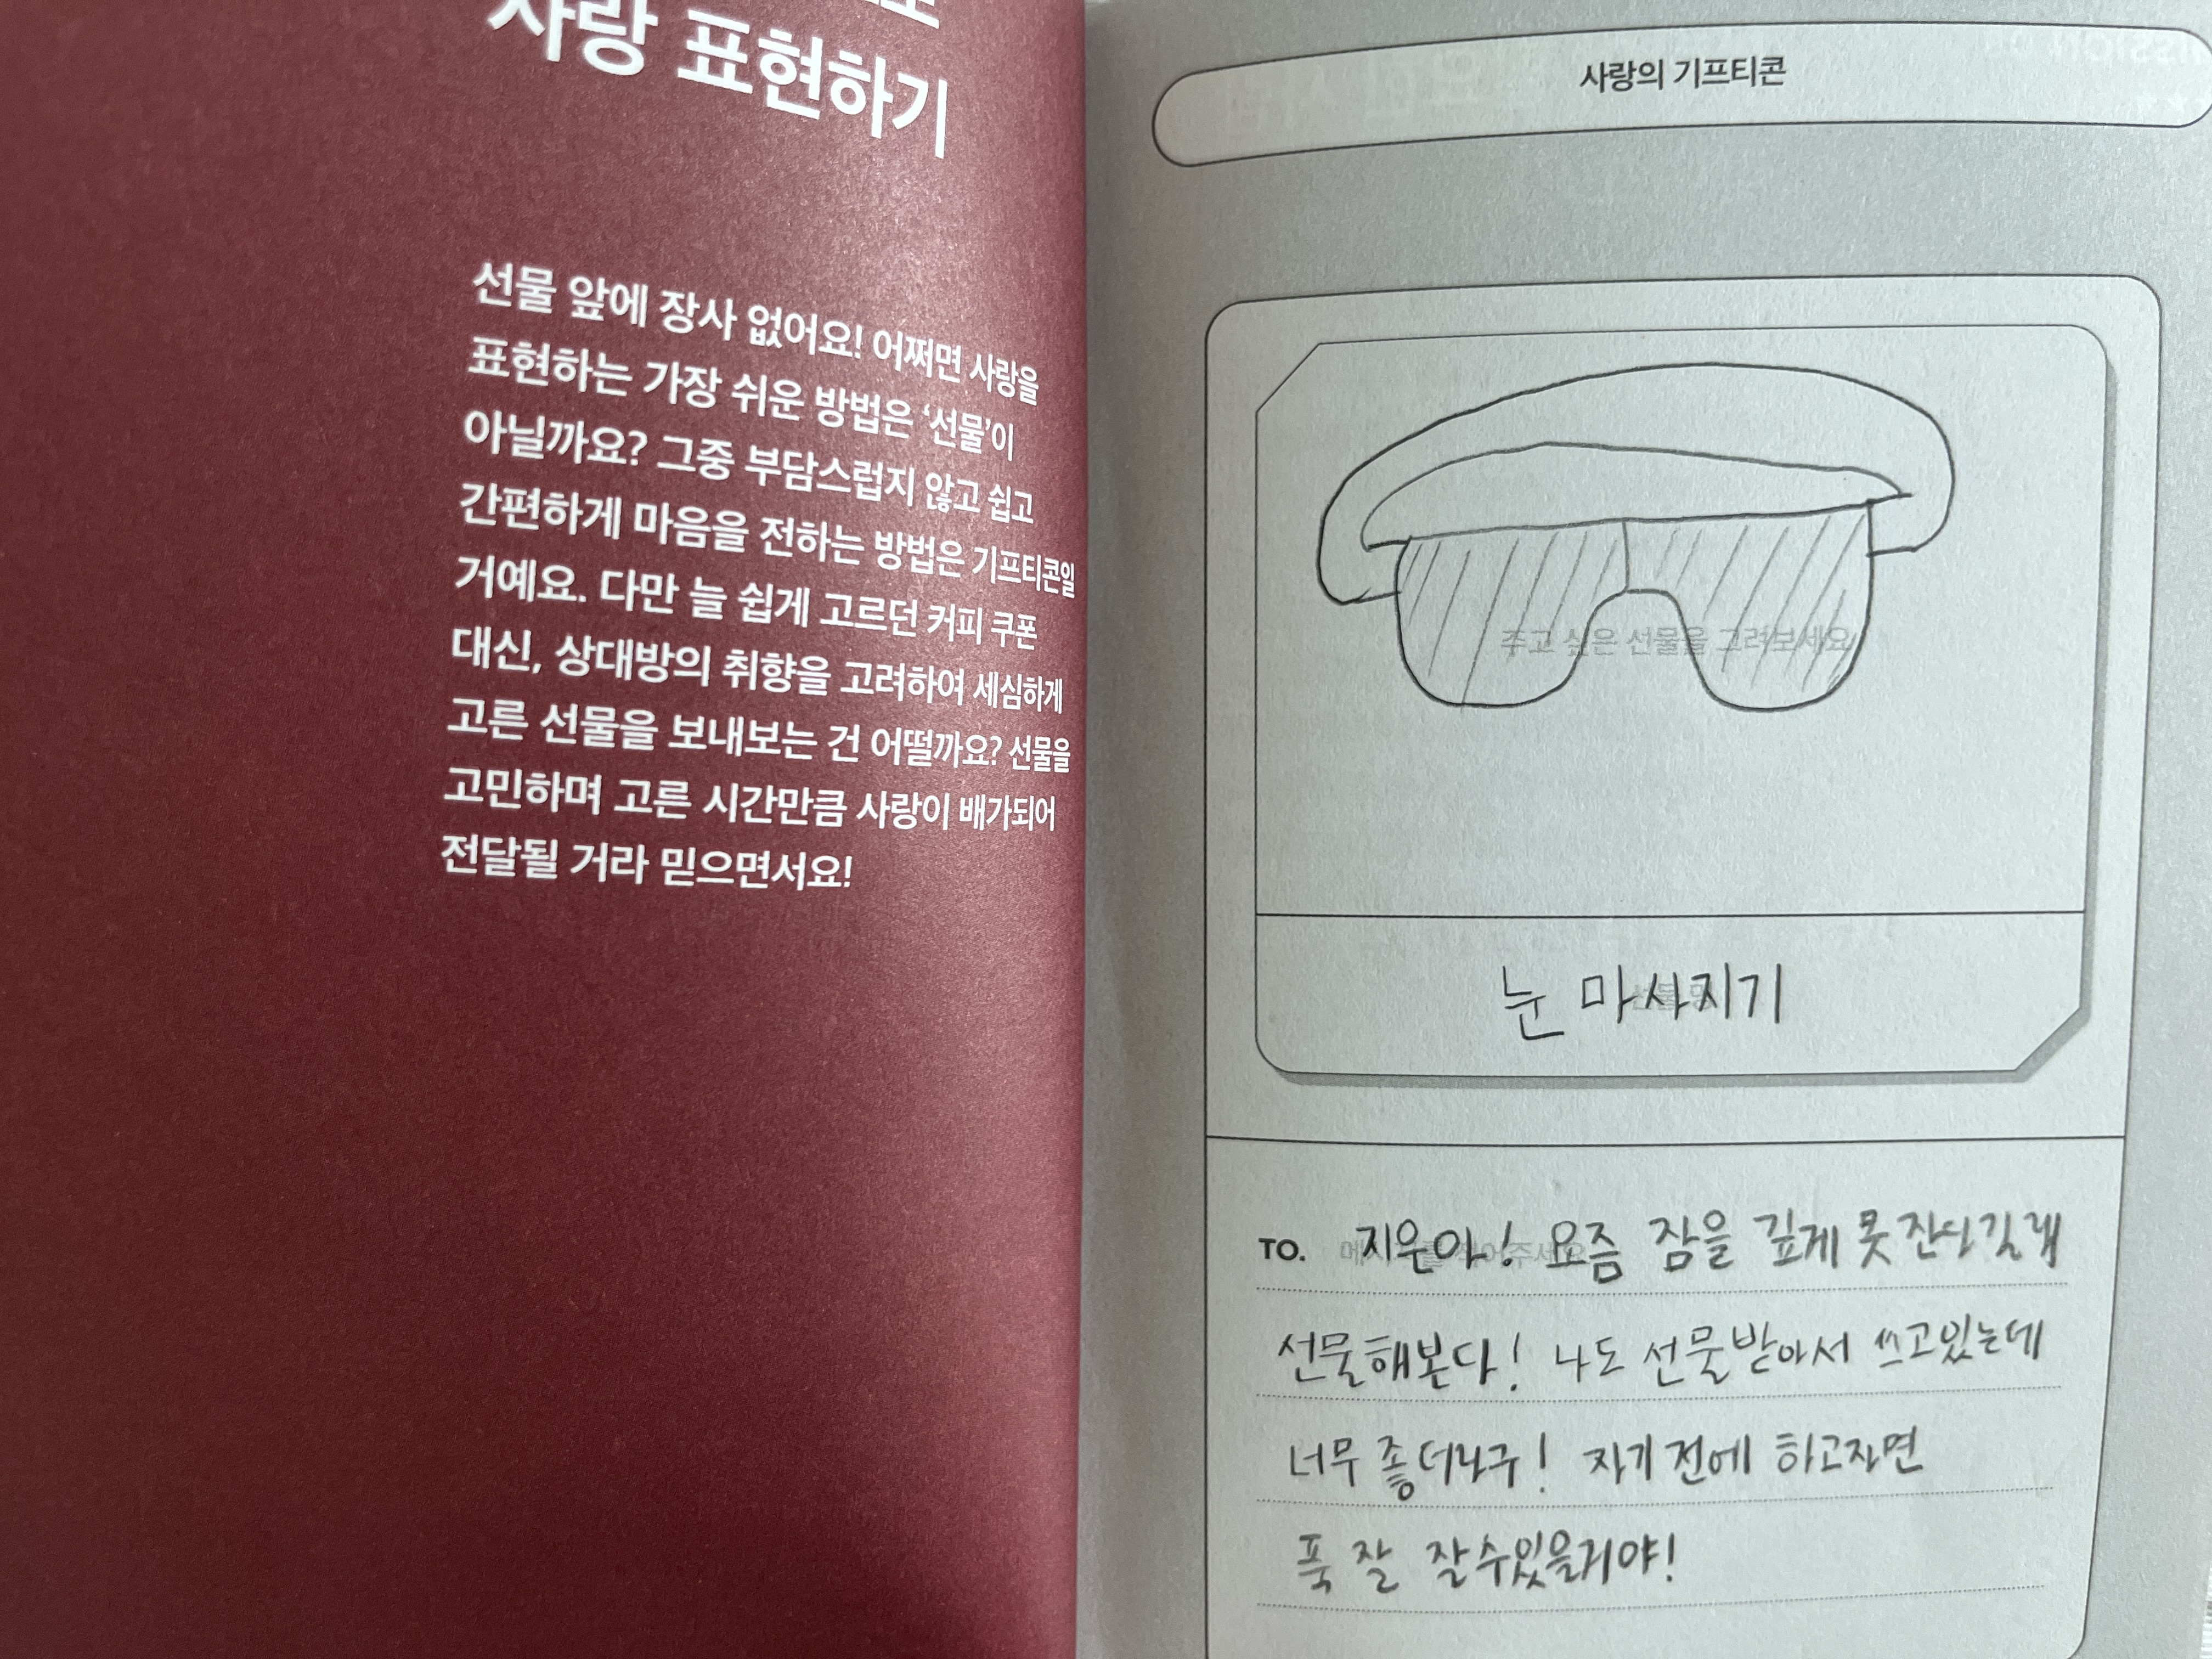 사랑 표현하기
선물 앞에 장사 없어요! 어쩌면 사랑을
표현하는 가장 쉬운 방법은 ‘선물’이
아닐까요? 그중 부담스럽지 않고 쉽고
간편하게 마음을 전하는 방법은 기프티콘일
거예요. 다만 늘 쉽게 고르던 커피 쿠폰
대신, 상대방의 취향을 고려하여 세심하게
고른 선물을 보내보는 건 어떨까요? 선물을
고민하며 고른 시간만큼 사랑이 배가되어
전달될 거라 믿으면서요!
사랑의 기프티콘
주고 싶은 선물을 그려보세요
눈 마사지기
TO. 지은아! 요즘 잠을 깊게 못 잔다길래
선물해본다! 나도 선물받아서 쓰고있는데
너무 좋더라구! 자기 전에 하고자면
푹 잘 잘수있을거야!